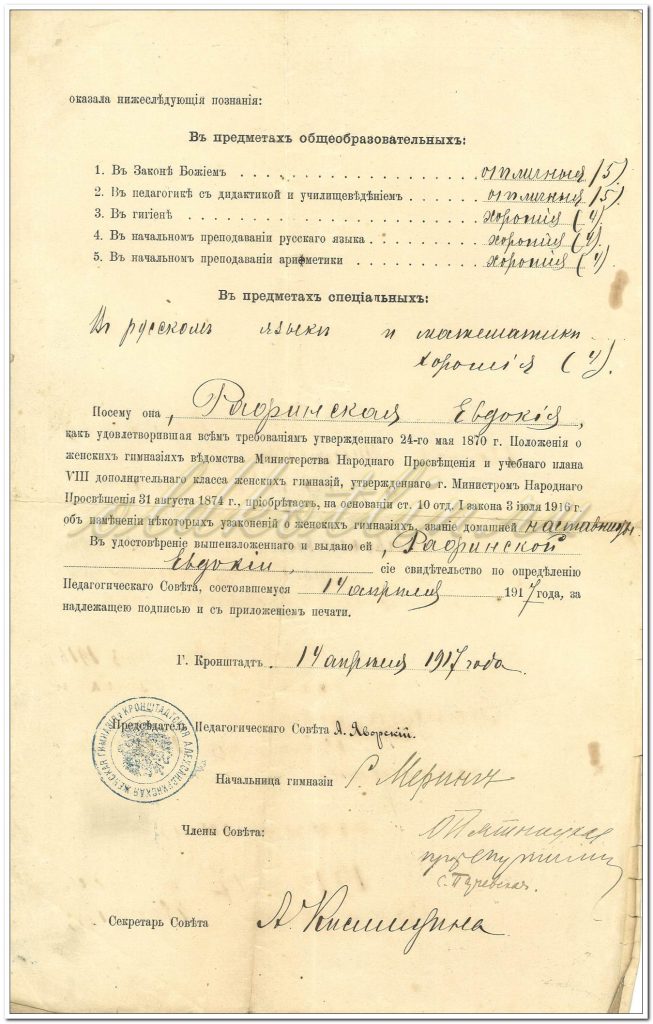 оказала нижеслѣдующія познанія:
Въ предметахъ общеобразовательныхъ:
1. Въ Законѣ Божіемъ отличныя (5)
2. Въ педагогикѣ съ дидактикой и училищевѣдѣніемъ отличныя (5)
3. Въ гигіенѣ хорошія (4)
4. Въ начальномъ преподаваніи русскаго языка хорошія (4)
5. Въ начальномъ преподаваніи ариѳметики хорошія (4)
Въ предметахъ спеціальныхъ:
Въ русскомъ языки и математики
хорошія (4).
Посему она, Рафинская Евдокія,
какъ удовлетворившая всѣмъ требованіямъ утвержденнаго 24-го мая 1870 г. Положенія о
женскихъ гимназіяхъ вѣдомства Министерства Народнаго Просвѣщенія и учебнаго плана
VIII дополнительнаго класса женскихъ гимназій, утвержденнаго г. Министромъ Народнаго
Просвѣщенія 31 августа 1874 г., пріобрѣтаетъ, на основаніи ст. 10 отд. I закона 3 іюля 1916 г.
объ измѣненіи нѣкоторыхъ узаконеній о женскихъ гимназіяхъ, званіе домашней наставницы
Въ удостовѣреніе вышеизложеннаго и выдано ей, Рафинской
Евдокіи, сіе свидѣтельство по опредѣленію
Педагогическаго Совѣта, состоявшемуся 14 апрѣля 1917 года, за
надлежащею подписью и съ приложеніемъ печати.
Г. Кронштадтъ. 14 апрѣля 1917 года.
Предсѣдатель Педагогическаго Совѣта А. Яворскій.
КРОНШТАДТСКАЯ АЛЕКСАНДРИНСКАЯ ЖЕНСКАЯ ГИМНАЗІЯ
Начальница гимназіи Мерингъ
Члены Совѣта:
Секретарь Совѣта А.